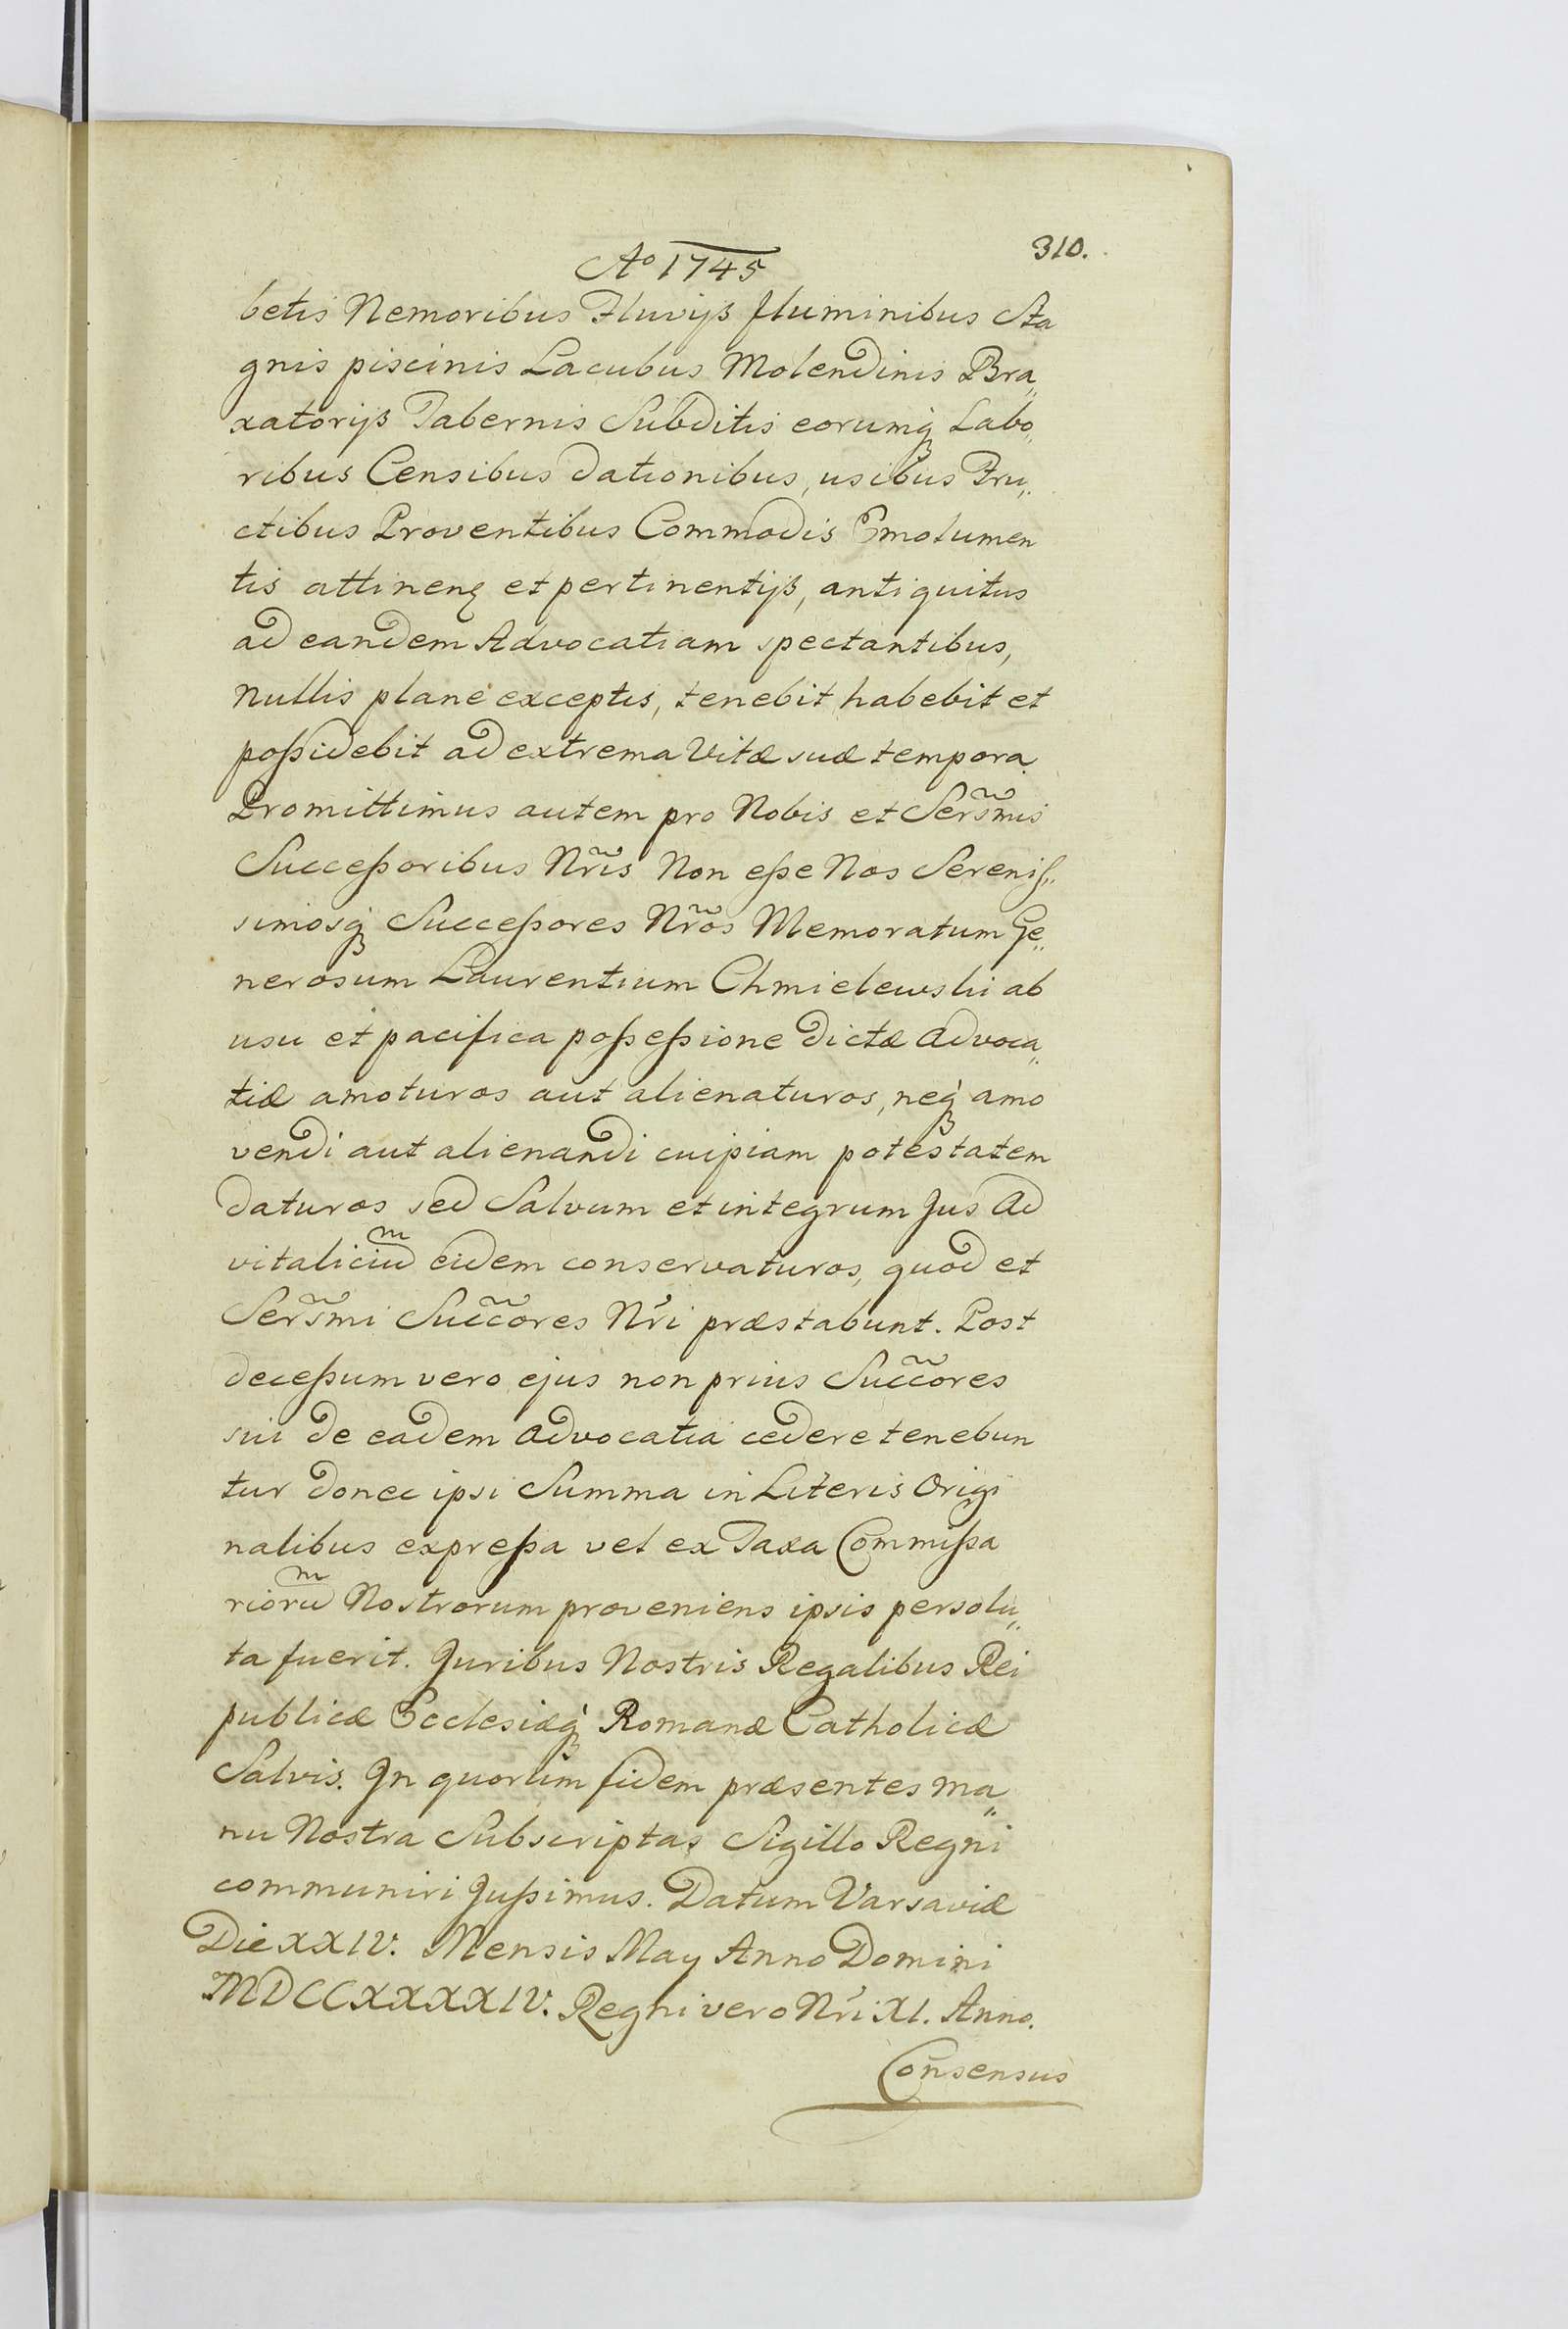 310.
Aº 1745
betis Nemoribus Fluvijs fluminibus Sta
gnis piscinis Lacubus Molendinis Bra„
xatorijs Tabernis Subditis eorumq́ Labo„
ribus Censibus dationibus, usibus Fru„
ctibus Proventibus Commodis Emolumen
tis attinenꝫ et pertinentijs, antiquitus
ad eandem Advocatiam spectantibus,
Nullis plane exceptis, tenebit habebit et
poßidebit ad extrema Vitæ suæ tempora.
Promittimus autem pro Nobis et Serz̃mis
Succeßoribus Nr̃is Non eße Nos Sereniſ„
simosq́ Succeßores Nr̃os Memoratum Ge„
nerosum Laurentium Chmielewski ab
usu et pacifica poßeßione dictæ Advoca„
tiæ amoturos aut alienaturos, neq́ amo
vendi aut alienandi cuipiam potestatem
daturos sed Salvum et integrum Jus Ad
vitaliciu͠ eidem conservaturos, quod et
Sers̃mi Succ̃ores Nri præstabunt. Post
deceßum vero ejus non prius Succ̃ores
sui de eadem Advocatia cedere tenebun
tur donec ipsi Summa in Literis Origi
nalibus expreßa vel ex Taxa Commißa
rioru͠ Nostrorum proveniens ipsis persolu„
ta fuerit. Juribus Nostris Regalibus Rei
publicæ Ecclesiæq́ Romanæ Catholicæ
Salvis. In quorum fidem præsentes ma„
nu Nostra Subscriptas Sigillo Regni
communiri Jußimus. Datum Varsaviæ
Die XXIV. Mensis May Anno Domini
MDCCXXXXIV. Regni vero Nri XI. Anno.
Consensus